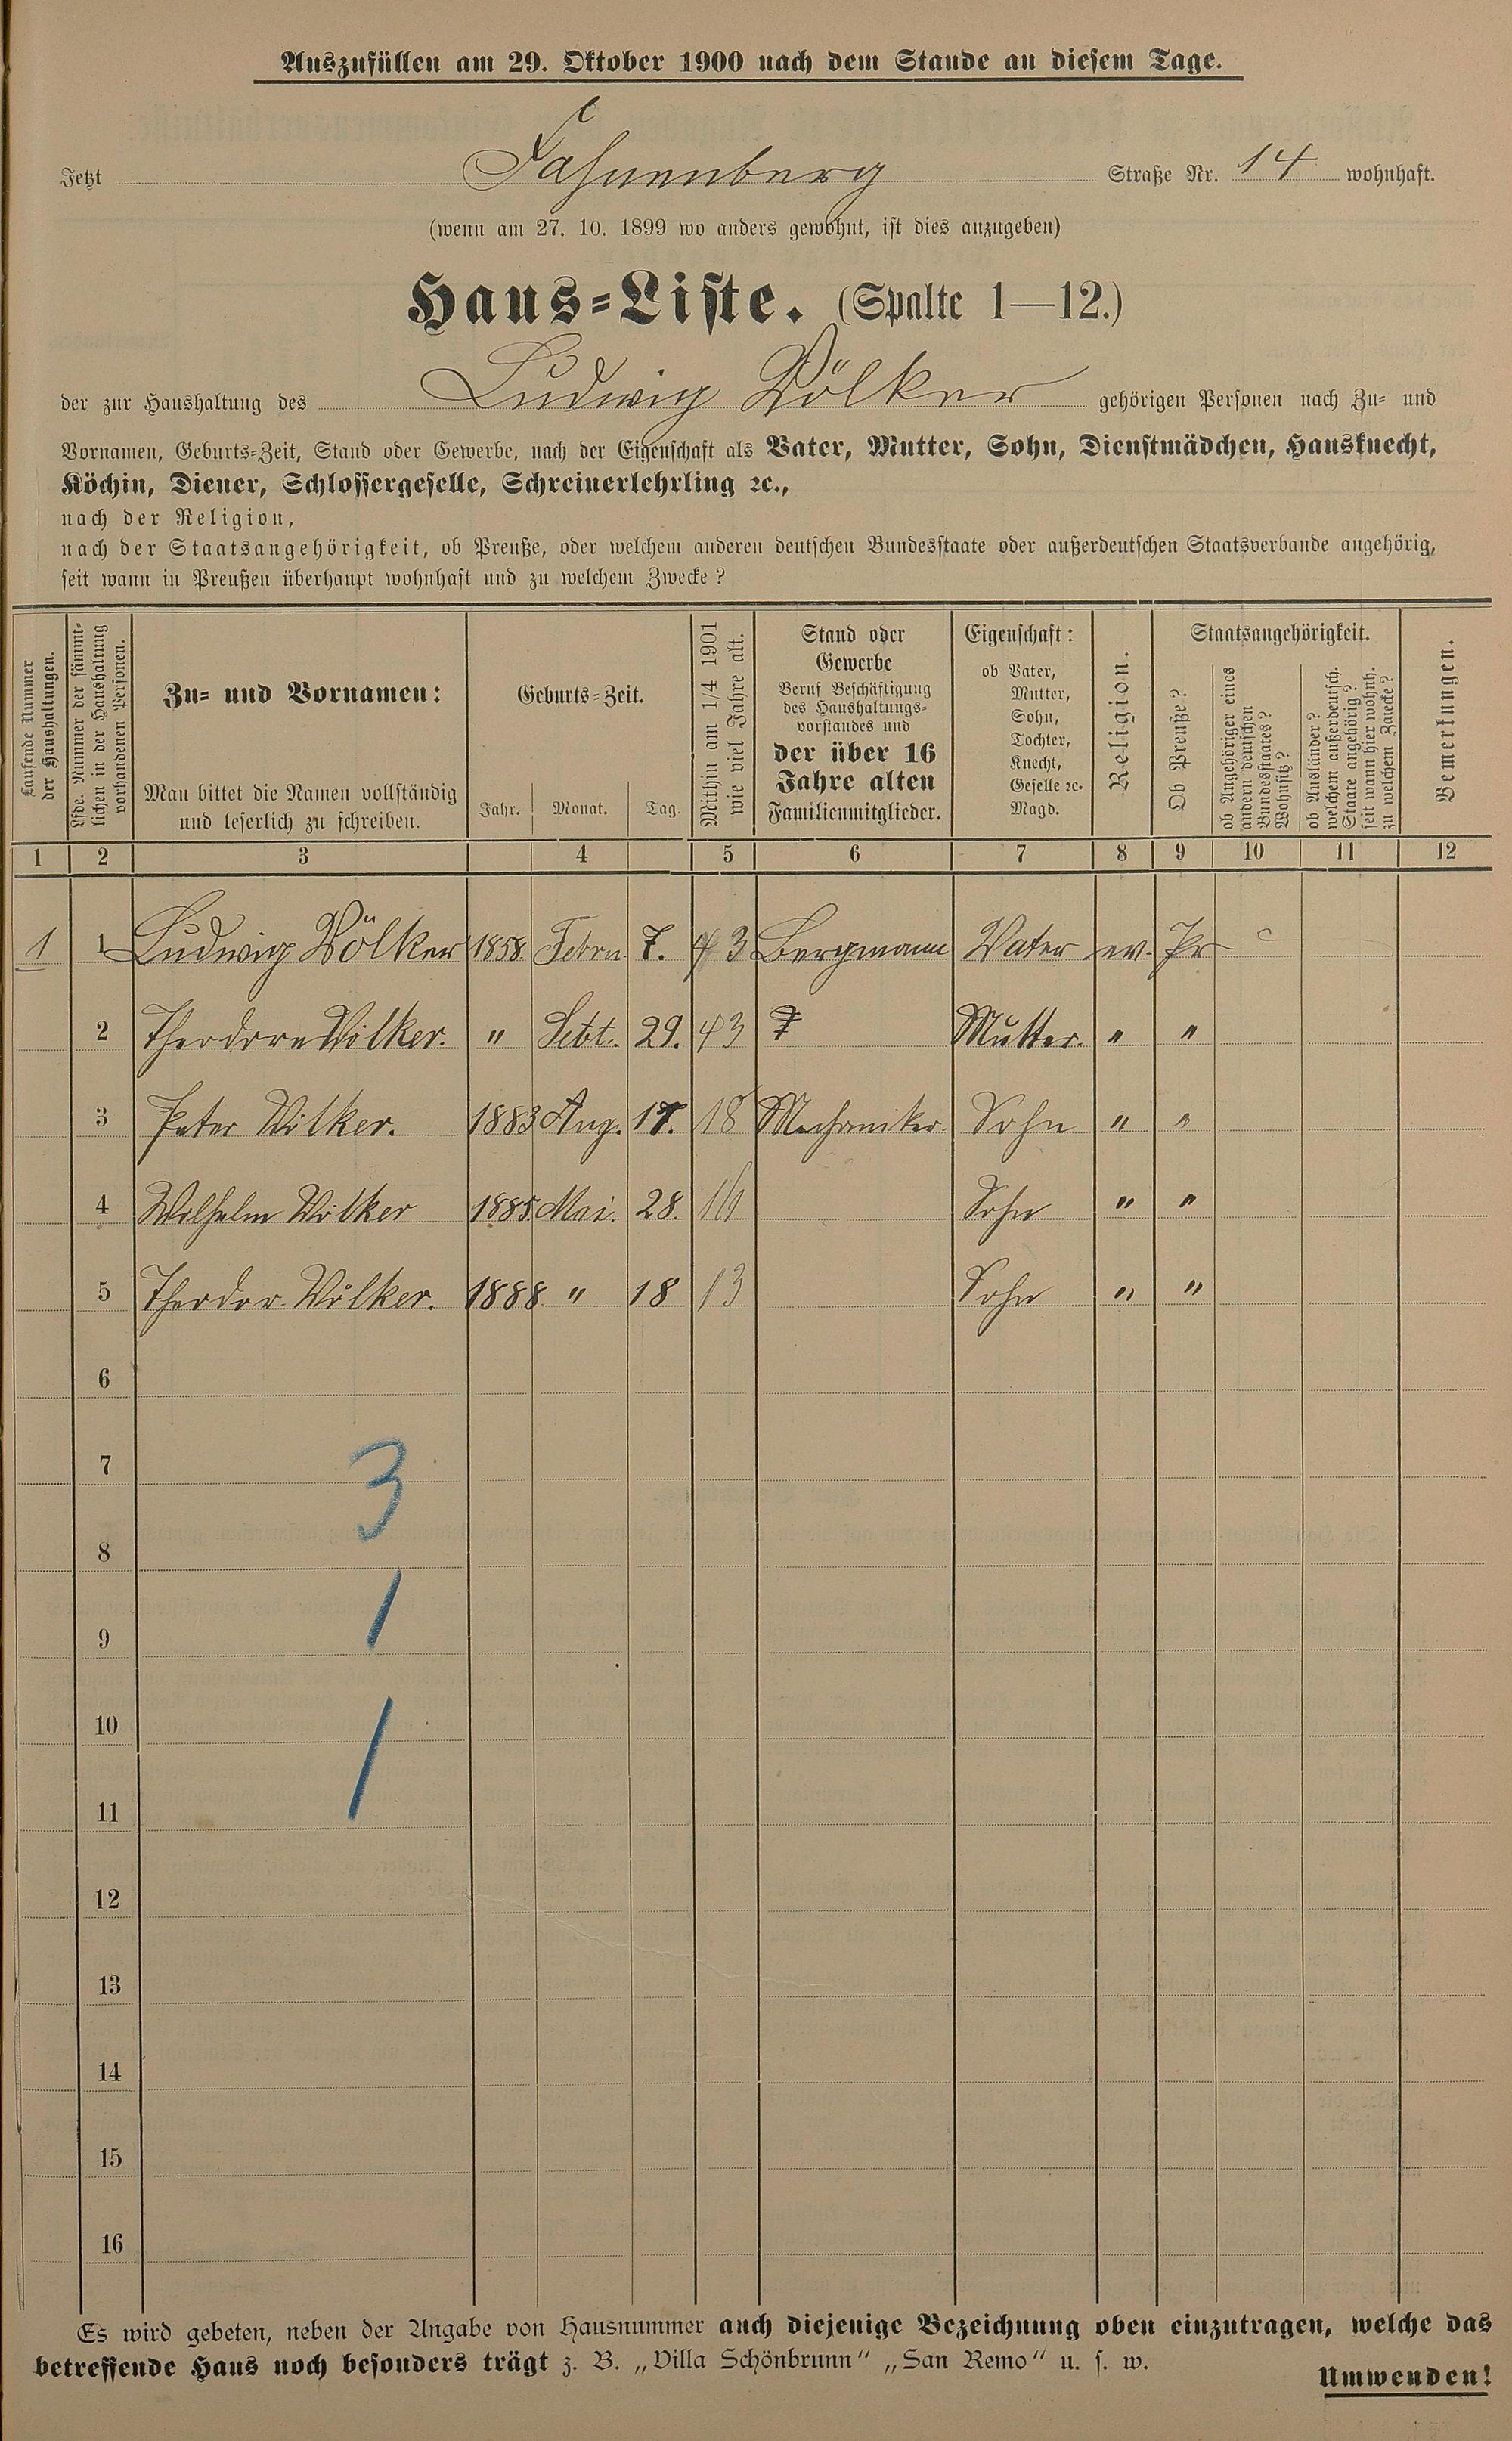 Auszufüllen am 29. Oktober 1900 nach dem Stande an diesem Tage.
Jetzt Fahnenberg Straße Nr. 14 wohnhaft.
(wenn am 27. 10. 1899 wo anders gewohnt, ist dies anzugeben)
Haus-Liste. (Spalte 1—12.)
der zur Haushaltung des Ludwig Völker gehörigen Personen nach Zu- und
Vornamen, Geburts-Zeit, Stand oder Gewerbe, nach der Eigenschaft als Vater, Mutter, Sohn, Dienstmädchen, Hausknecht,
Köchin, Diener, Schlossergeselle, Schreinerlehrling ꝛc.,
nach der Religion,
nach der Staatsangehörigkeit, ob Preuße, oder welchem anderen deutschen Bundesstaate oder außerdeutschen Staatsverbande angehörig,
seit wann in Preußen überhaupt wohnhaft und zu welchem Zwecke?
Laufende Nummer
der Haushaltungen.
Lfde. Nummer der sämmt-
lichen in der Haushaltung
vorhandenen Personen.
Zu- und Vornamen:
Man bittet die Namen vollständig
und leserlich zu schreiben.
Geburts-Zeit.
Jahr. Monat. Tag.
Mithin am 1/4 1901
wie viel Jahre alt.
Stand oder
Gewerbe
Beruf Beschäftigung
des Haushaltungs-
vorstandes und
der über 16
Jahre alten
Familienmitglieder.
Eigenschaft:
ob Vater,
Mutter,
Sohn,
Tochter,
Knecht,
Geselle ꝛc.
Magd.
Religion.
Staatsangehörigkeit.
Ob Preuße?
ob Angehöriger eines
andern deutschen
Bundesstaates?
Wohnsitz?
ob Ausländer?
welchem außerdeutsch.
Staate angehörig?
seit wann hier wohnh.
zu welchem Zwecke?
Bemerkungen.
1 2 3 4 5 6 7 8 9 10 11 12
1 1 Ludwig Völker 1858 Febru. 7. 43 Bergmann Vater ev. Pr
2 Theodore Völker. " Sebt. 29. 43 Mutter. " "
3 Peter Völker. 1883 Aug. 17. 18 Mechaniker Sohn " "
4 Wilhelm Völker 1885. Mai. 28. 16 Sohn " "
5 Theodor Völker. 1888 " 18 13 Sohn " "
6
7
3
8
9
1
10
1
11
12
13
14
15
16
Es wird gebeten, neben der Angabe von Hausnummer auch diejenige Bezeichnung oben einzutragen, welche das
betreffende Haus noch besonders trägt z. B. „Villa Schönbrunn“ „San Remo“ u. s. w.
Umwenden!